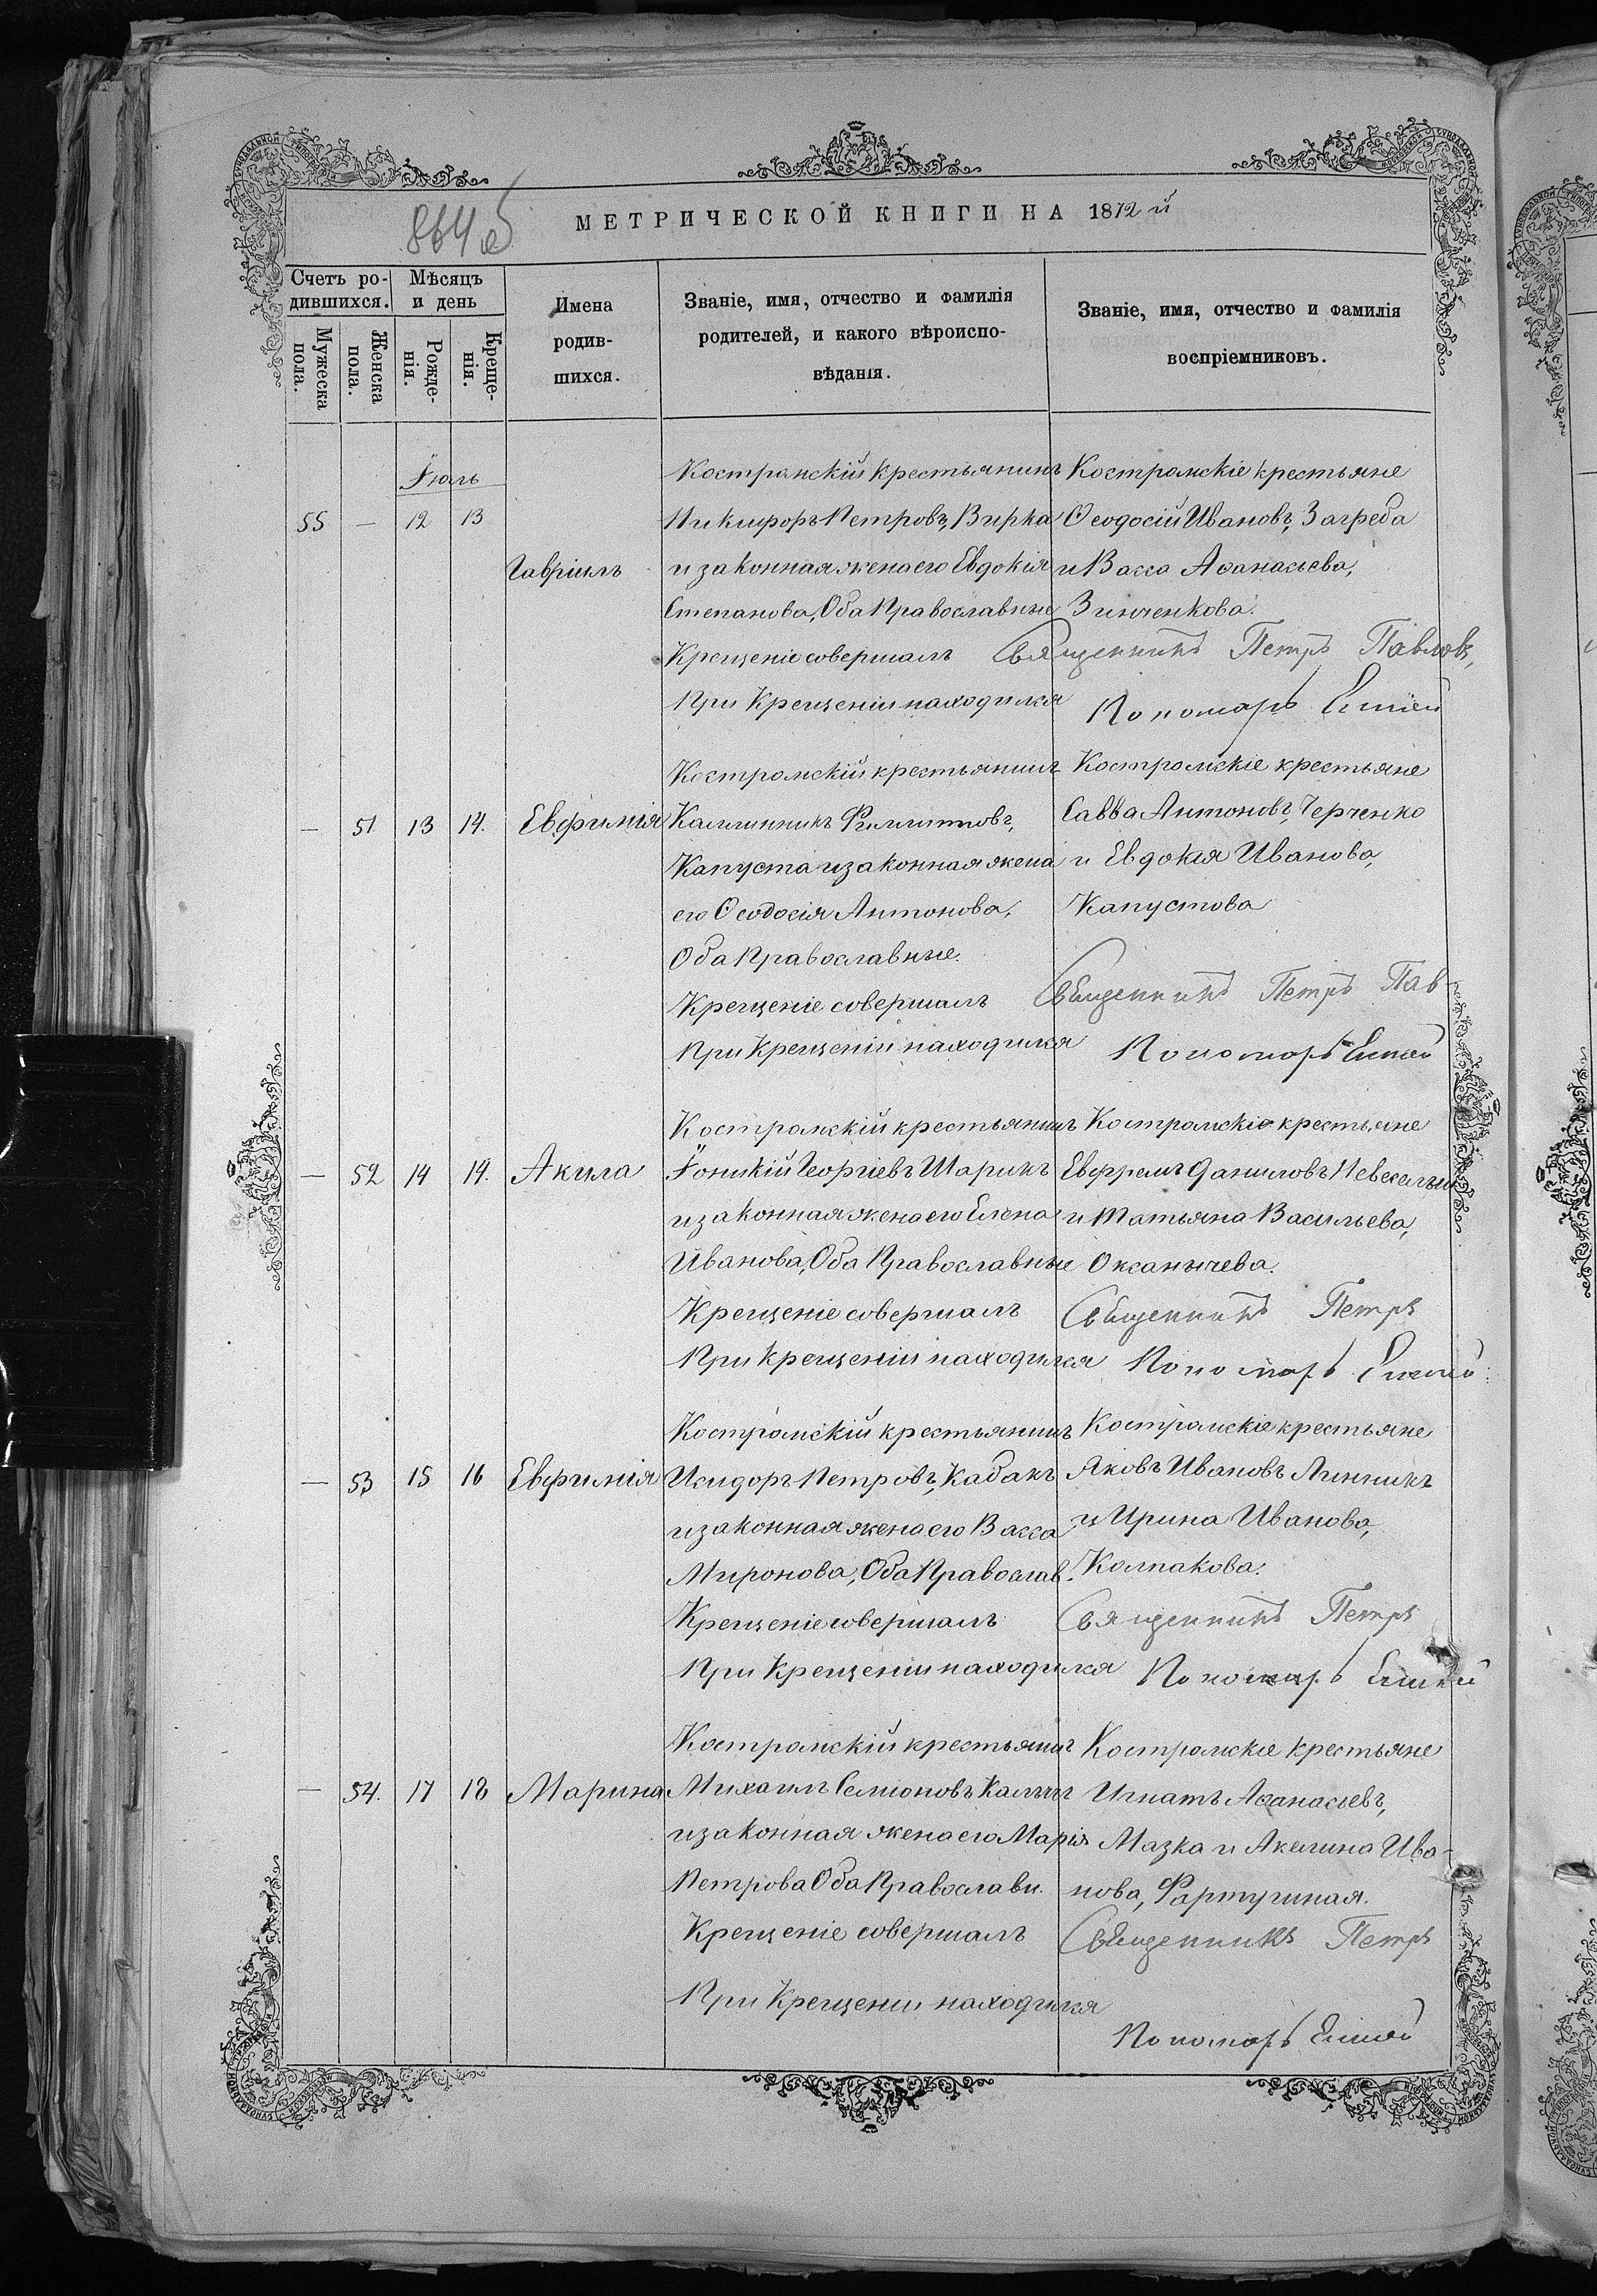 864 об
МЕТРИЧЕСКОЙ КНИГИ НА 1872 й
Счетъ ро-
дившихся.
Мужеска
пола.
Женска
пола.
Мѣсяцъ
и день
Рожде-
нія.
Креще-
нія.
Имена
родив-
шихся.
Званіе, имя, отчество и фамилія
родителей, и какого вѣроиспо-
вѣданія.
Званіе, имя, отчество и фамилія
воспріемниковъ.
Іюль
55 — 12 13
Гавріилъ
Костромскій крестьянинъ
Никифоръ Петровъ, Вирка
и законная жена его Евдокія
Степанова, Оба Православные
Костромскіе крестьяне
Ѳеодосій Ивановъ, Загреба
и Васса Аѳанасьева,
Зинченкова.
Крещеніе совершалъ Священникъ Петръ Павловъ,
При Крещеніи находился Пономарь
— 51 13 14. Евфимія
Костромскій крестьянинъ
Каллинникъ Филлиповъ,
Капуста и законная жена
его Ѳеодосія Антонова,
Оба Православные.
Костромскіе крестьяне
Савва Антоновъ, Черченко
и Евдокія Иванова,
Капустова
Крещеніе совершалъ Священникъ Петръ Пав-
При Крещеніи находился Пономарь
— 52 14 14. Акила
Костромскій крестьянинъ
Іоникій Георгіевъ Шарикъ
и законная жена его Елена
Иванова, Оба Православные
Костромскіе крестьяне
Евфремъ Даниловъ Невеселый
и Татьяна Васильева,
Оксанычева.
Крещеніе совершалъ Священникъ Петръ
При крещеніи находился Пономарь
— 53 15 16 Евфимія
Костромскій крестьянинъ
Исидоръ Петровъ, Кабакъ
и законная жена его Васса
Миронова, Оба Православ.
Костромскіе крестьяне
Яковъ Ивановъ Линникъ
и Ирина Иванова,
Колпакова.
Крещеніе совершалъ Священникъ Петръ
При Крещеніи находился Пономарь
— 54. 17 18 Марина
Костромскій крестьянинъ
Михаилъ Семіоновъ
и законная жена его Марія
Петрова Оба Православн.
Костромскіе крестьяне
Игнатъ Аѳанасіевъ,
Мазка и Акелина Ива-
нова, Фартушная.
Крещеніе совершалъ Священникъ Петръ
При Крещеніи находился
Пономарь